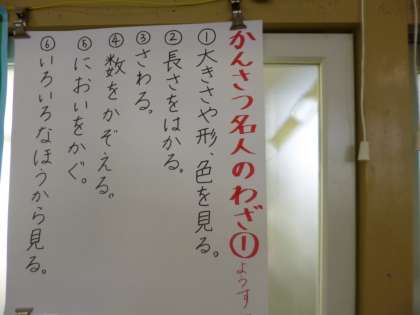 かんさつ名人のわざ①ようす
①大きさや形、色を見る。
②長さをはかる。
③さわる。
④数をかぞえる。
⑤においをかぐ。
⑥いろいろなほうから見る。